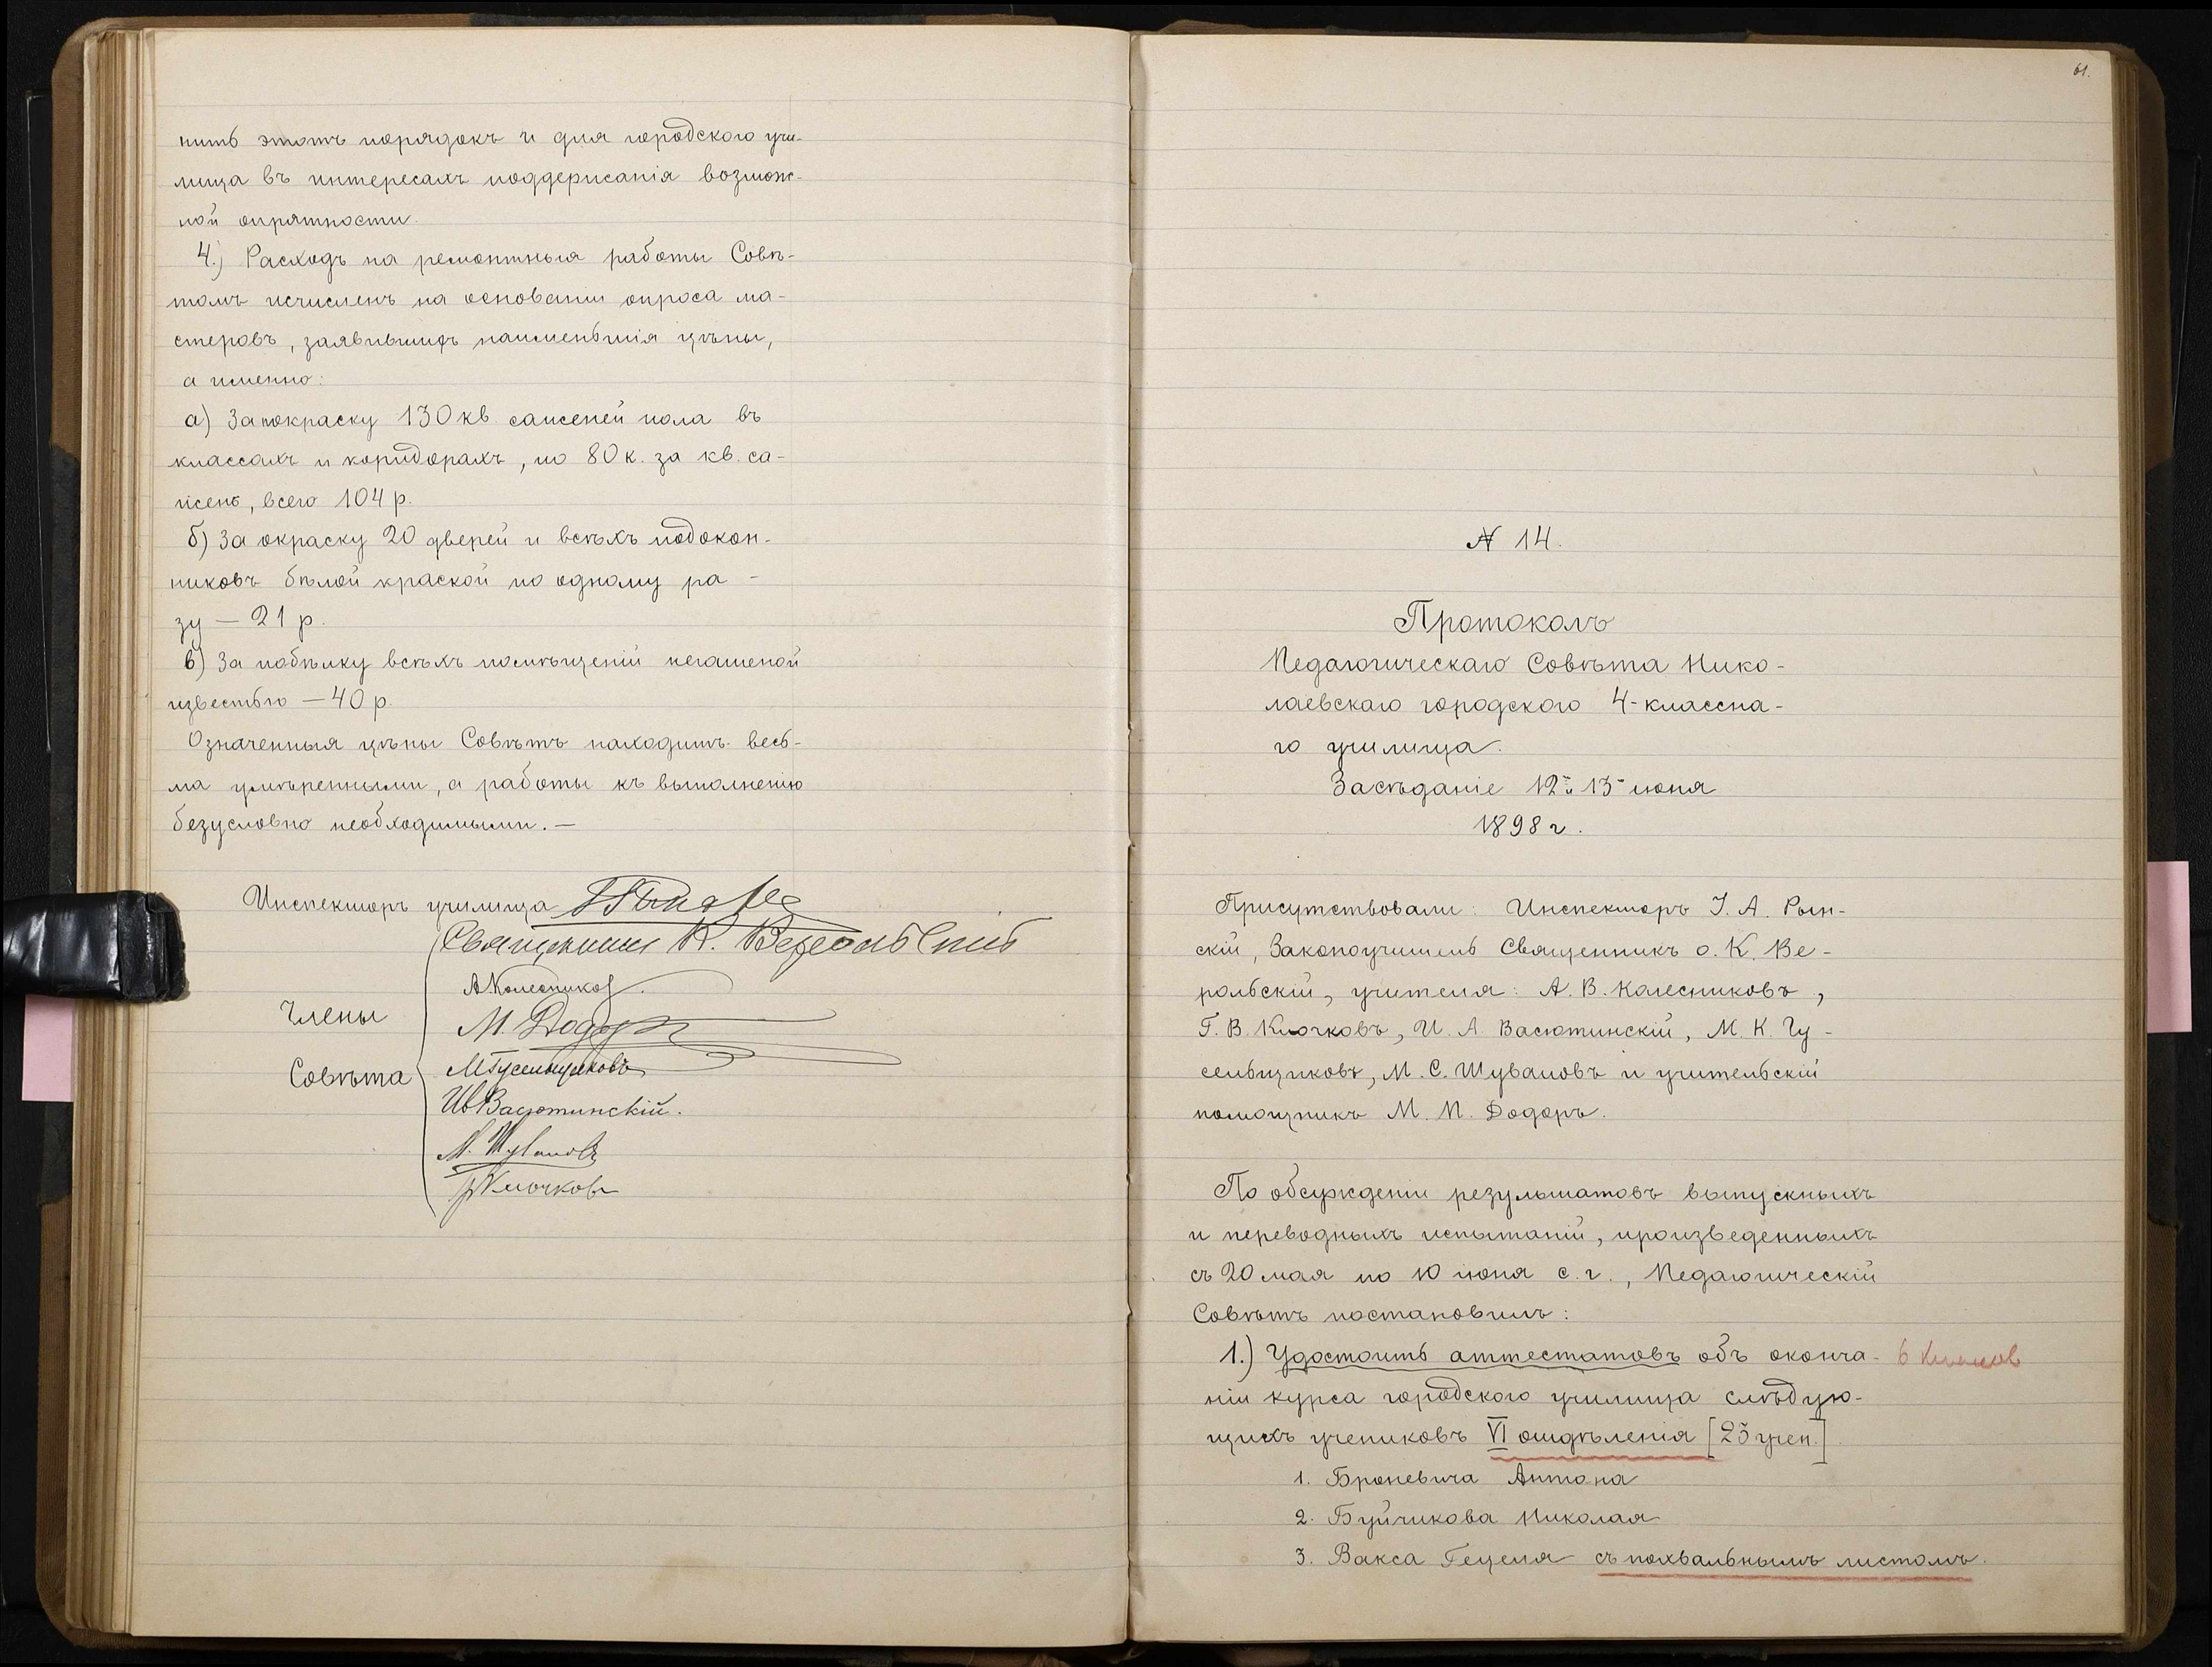 нить этотъ порядокъ и для городского учи-
лища въ интересахъ поддержанія возмож-
ной опрятности.
4.) Расходъ на ремонтныя работы Совѣ-
томъ исчисленъ на основаніи опроса ма-
стеровъ, заявившихъ наименьшія цѣны,
а именно:
а) За покраску 130 кв. саженей пола въ
классахъ и коридорахъ, по 80 к. за кв. са-
жень, всего 104 р.
б) За окраску 20 дверей и всѣхъ подокон-
никовъ бѣлой краской по одному ра-
зу — 21 р.
в) За побѣлку всѣхъ помѣщеній негашеной
известью — 40 р.
Означенныя цѣны Совѣтъ находитъ весь-
ма умѣренными, а работы къ выполненію
безусловно необходимыми. —
Инспекторъ училища
Священникъ К.
А Колесников
Члены
М. Додоръ
Совѣта
М Гусельщиковъ
Ив Васютинскій.
М. Шувановъ
Г Клочковъ
61.
№ 14.
Протоколъ
Педагогическаго Совѣта Нико-
лаевскаго городского 4-классна-
го училища.
Засѣданіе 12 и 13 июня
1898 г.
Присутствовали: Инспекторъ І. А. Рын-
скій, Законоучитель Священникъ о. К. Ве-
рольскій, учителя: А. В. Колесниковъ,
Г. В. Клочковъ, И. А. Васютинскій, М. К. Гу-
сельщиковъ, М. С. Шувановъ и учительскій
помощникъ М. П. Додоръ.
По обсужденіи результатовъ выпускныхъ
и переводныхъ испытаній, произведенныхъ
съ 20 мая по 10 июня с. г., Педагогическій
Совѣтъ постановилъ:
1.) Удостоить аттестатовъ объ оконча- 6
ніи курса городского училища слѣдую-
щихъ учениковъ VI отдѣленія [25 учен.]
1. Броневича Антона
2. Буйчикова Николая
3. Вакса Гецеля съ похвальнымъ листомъ.